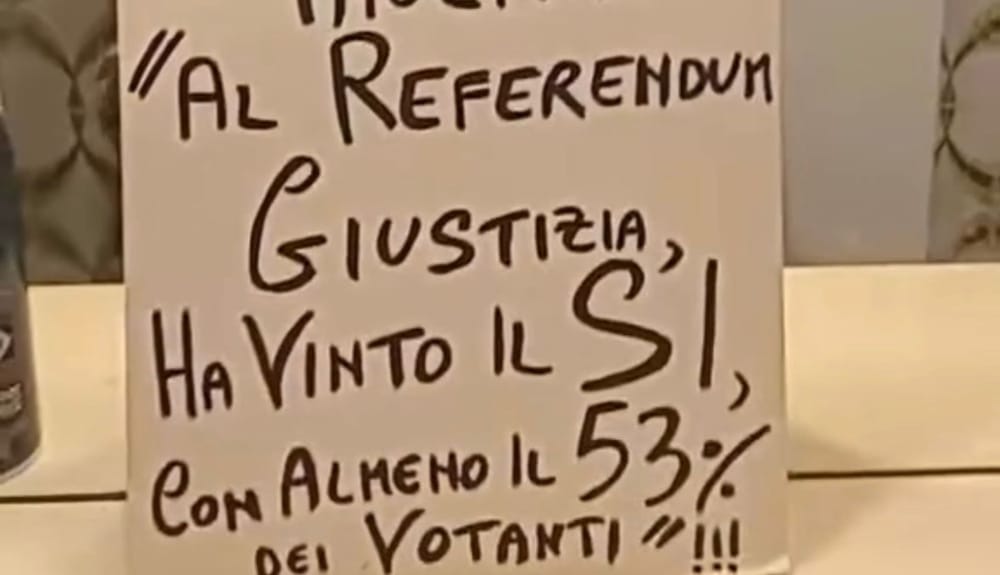 "AL REFERENDUM
GIUSTIZIA,
HA VINTO IL SI,
CON ALMENO IL 53%
DEI VOTANTI"!!!